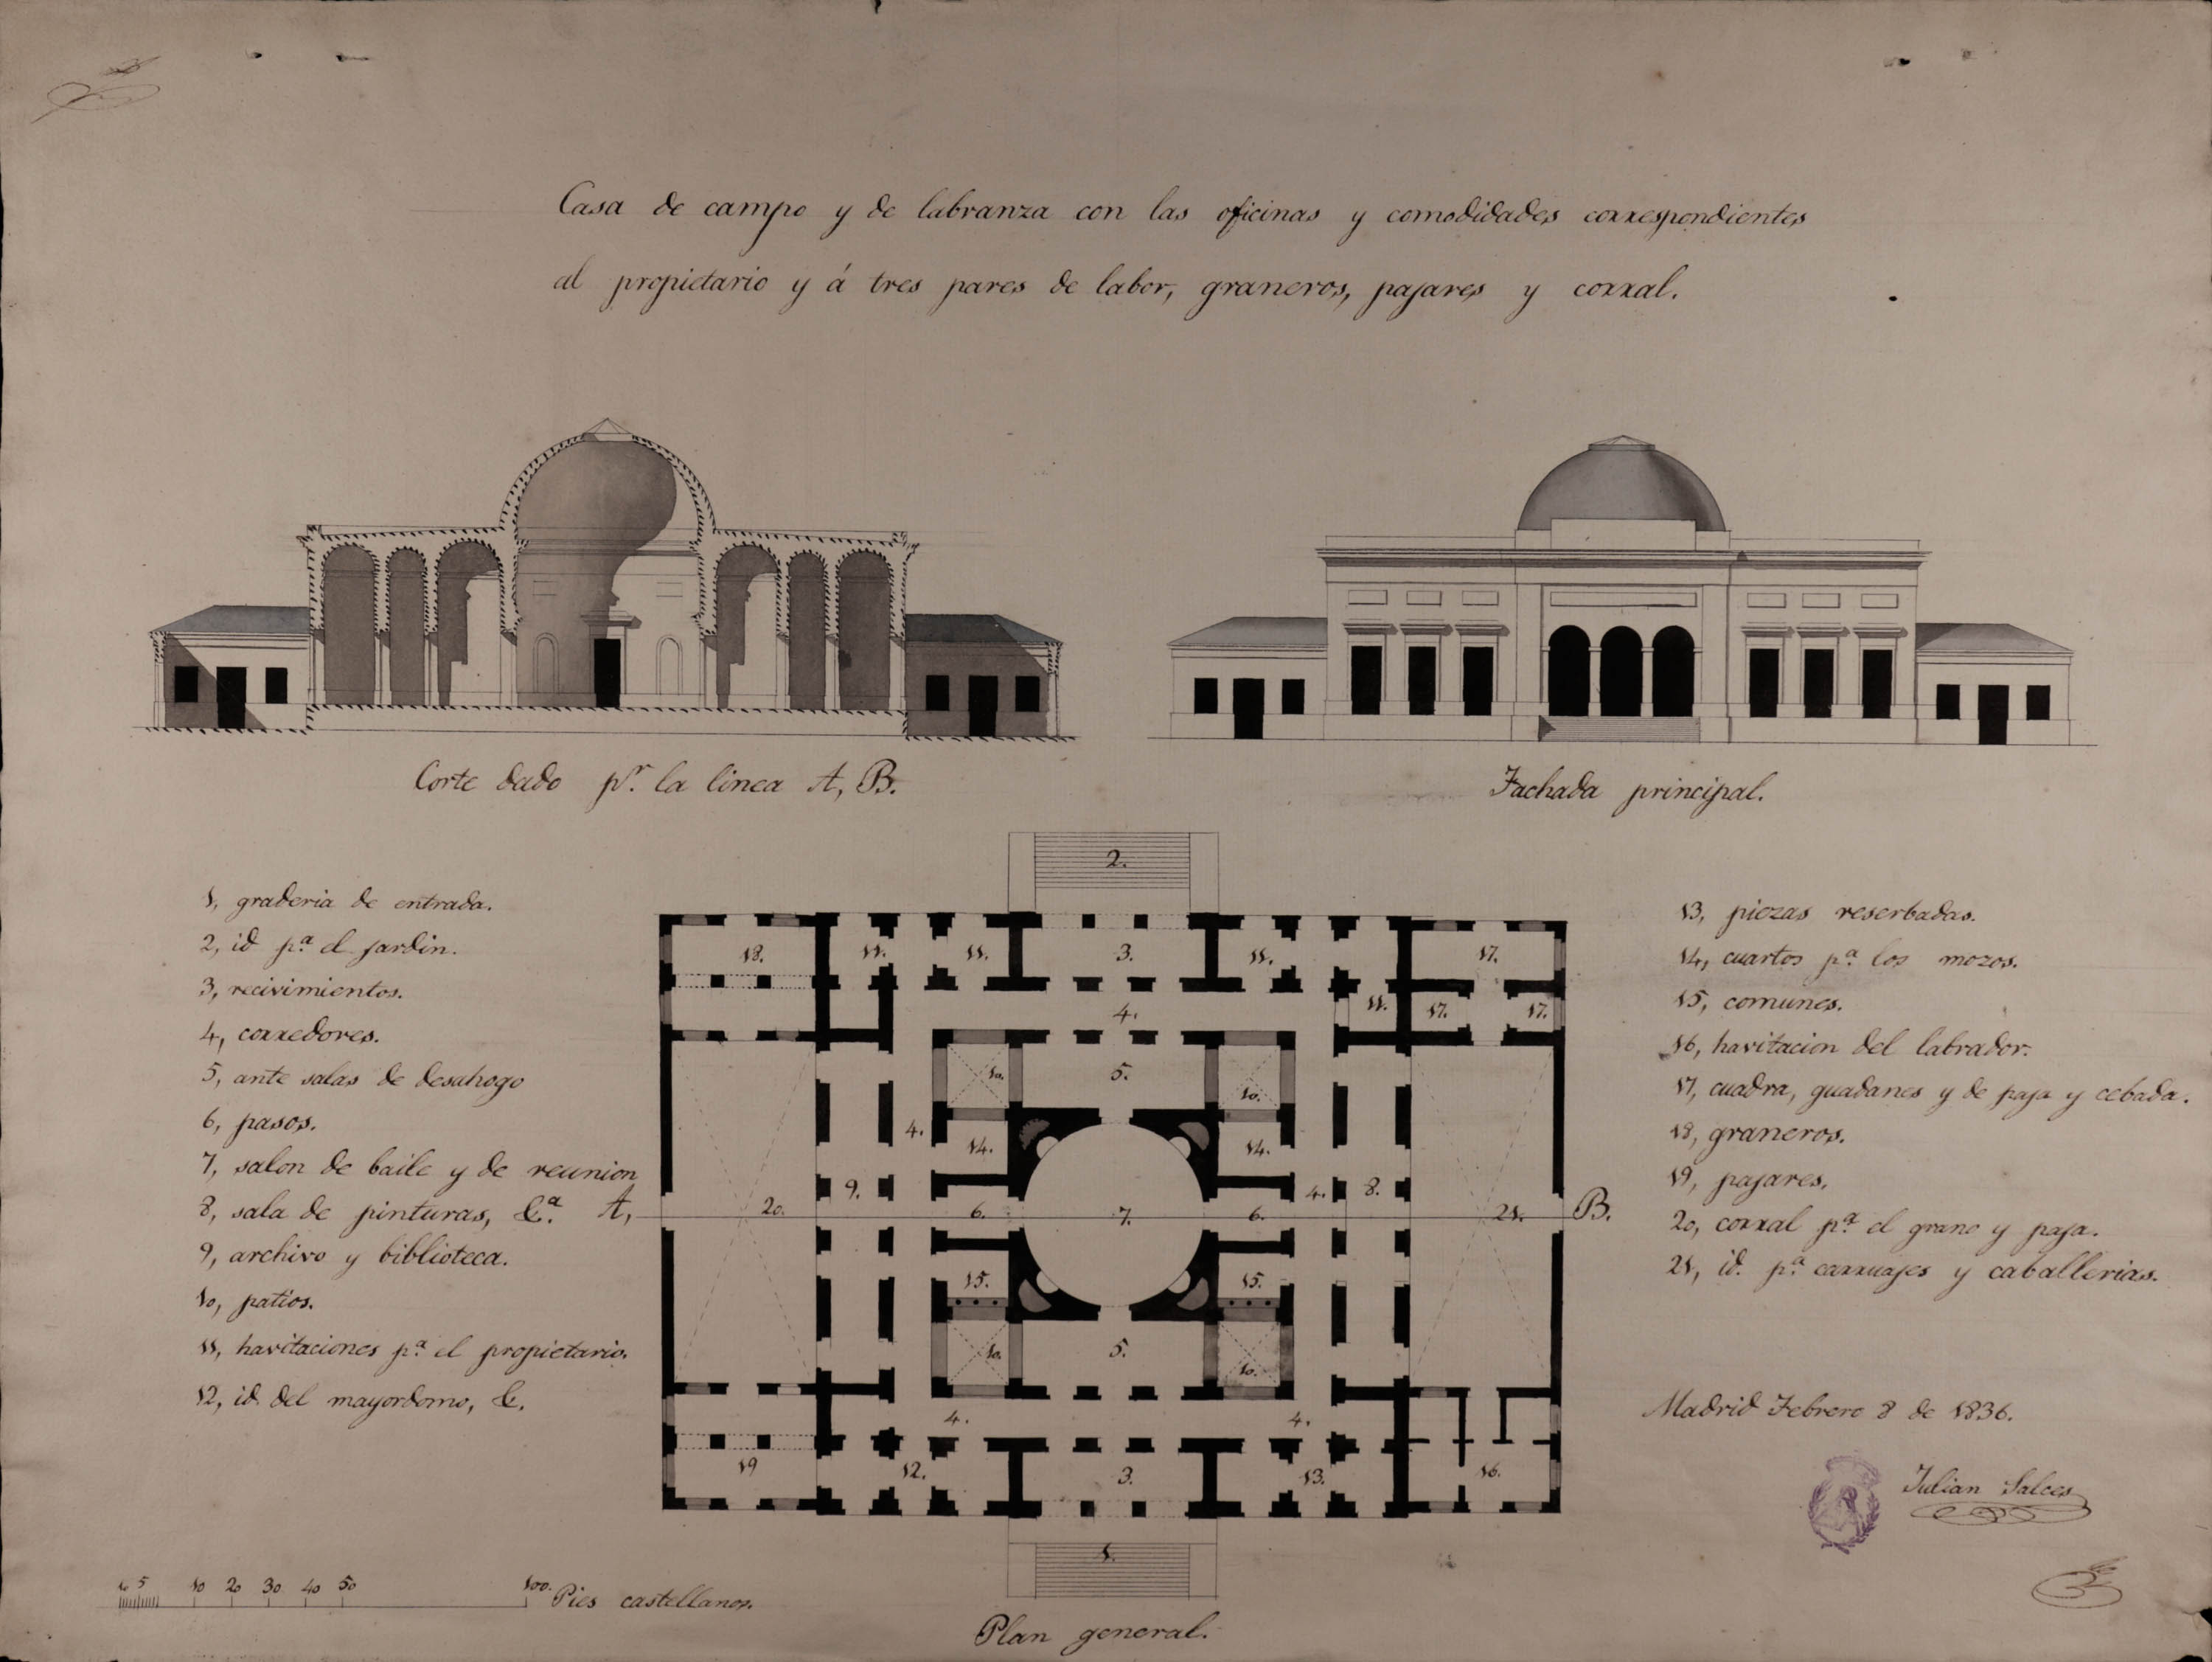 Casa de campo y de labranza con las oficinas y comodidades correspondientes
al propietario y á tres pares de labor, graneros, pajares y corral.
Corte dado pr. la linea A, B.
Fachada principal.
1, graderia de entrada.
2, id pa. el jardin.
3, recivimientos.
4, corredores.
5, ante salas de desahogo
6, pasos.
7, salon de baile y de reunion
8, sala de pinturas, &a.
9, archivo y biblioteca.
10, patios.
11, havitaciones pa. el propietario.
12, id. del mayordomo, &.
2.
18. 11. 11. 3. 11. 17.
4. 11. 17. 17.
10. 5. 10.
4. 14. 14.
9. 4. 8.
A, 20. 6. 7. 6. 21. B.
15. 15.
10. 5. 10.
4. 4.
19 12. 3. 13. 16.
1.
Plan general.
13, piezas reserbadas.
14, cuartos pa. los mozos.
15, comunes.
16, havitacion del labrador.
17, cuadra, guadanes y de paja y cebada.
18, graneros.
19, pajares.
20, corral pa. el grano y paja.
21, id. pa. carruajes y caballerias.
Madrid Febrero 8 de 1836.
Julian Salces
10 5 10 20 30 40 50 100. Pies castellanos.